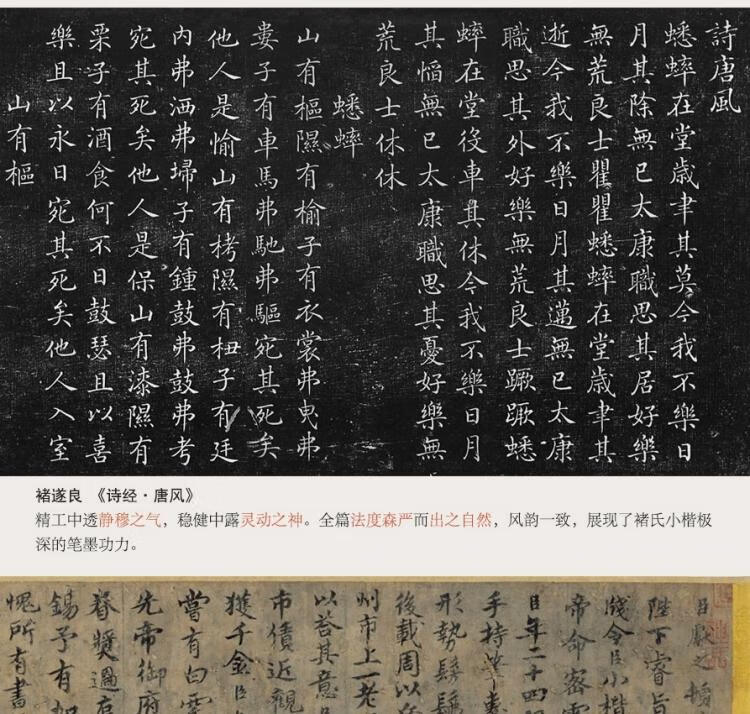 詩唐風
蟋蟀在堂歲聿其莫今我不樂日
月其除無已太康職思其居好樂
無荒良士瞿瞿蟋蟀在堂歲聿其
逝今我不樂日月其邁無已太康
職思其外好樂無荒良士蹶蹶蟋
蟀在堂役車其休今我不樂日月
其慆無已太康職思其憂好樂無
荒良士休休
蟋蟀
山有樞隰有榆子有衣裳弗曳弗
婁子有車馬弗馳弗驅宛其死矣
他人是愉山有栲隰有杻子有廷
内弗洒弗埽子有鍾鼓弗鼓弗考
宛其死矣他人是保山有漆隰有
栗子有酒食何不日鼓瑟且以喜
樂且以永日宛其死矣他人入室
山有樞
褚遂良 《诗经·唐风》
精工中透静穆之气，稳健中露灵动之神。全篇法度森严而出之自然，风韵一致，展现了褚氏小楷极
深的笔墨功力。
臣獻之
陛下睿旨
牋令臣小楷
帝命密
年二十四
手持
形勢髣
後載周以
州市上一老
以荅其意
市債近觀
獲千金臣
嘗有白雲
先帝御府
眷奬過
錫予有
愧所有書